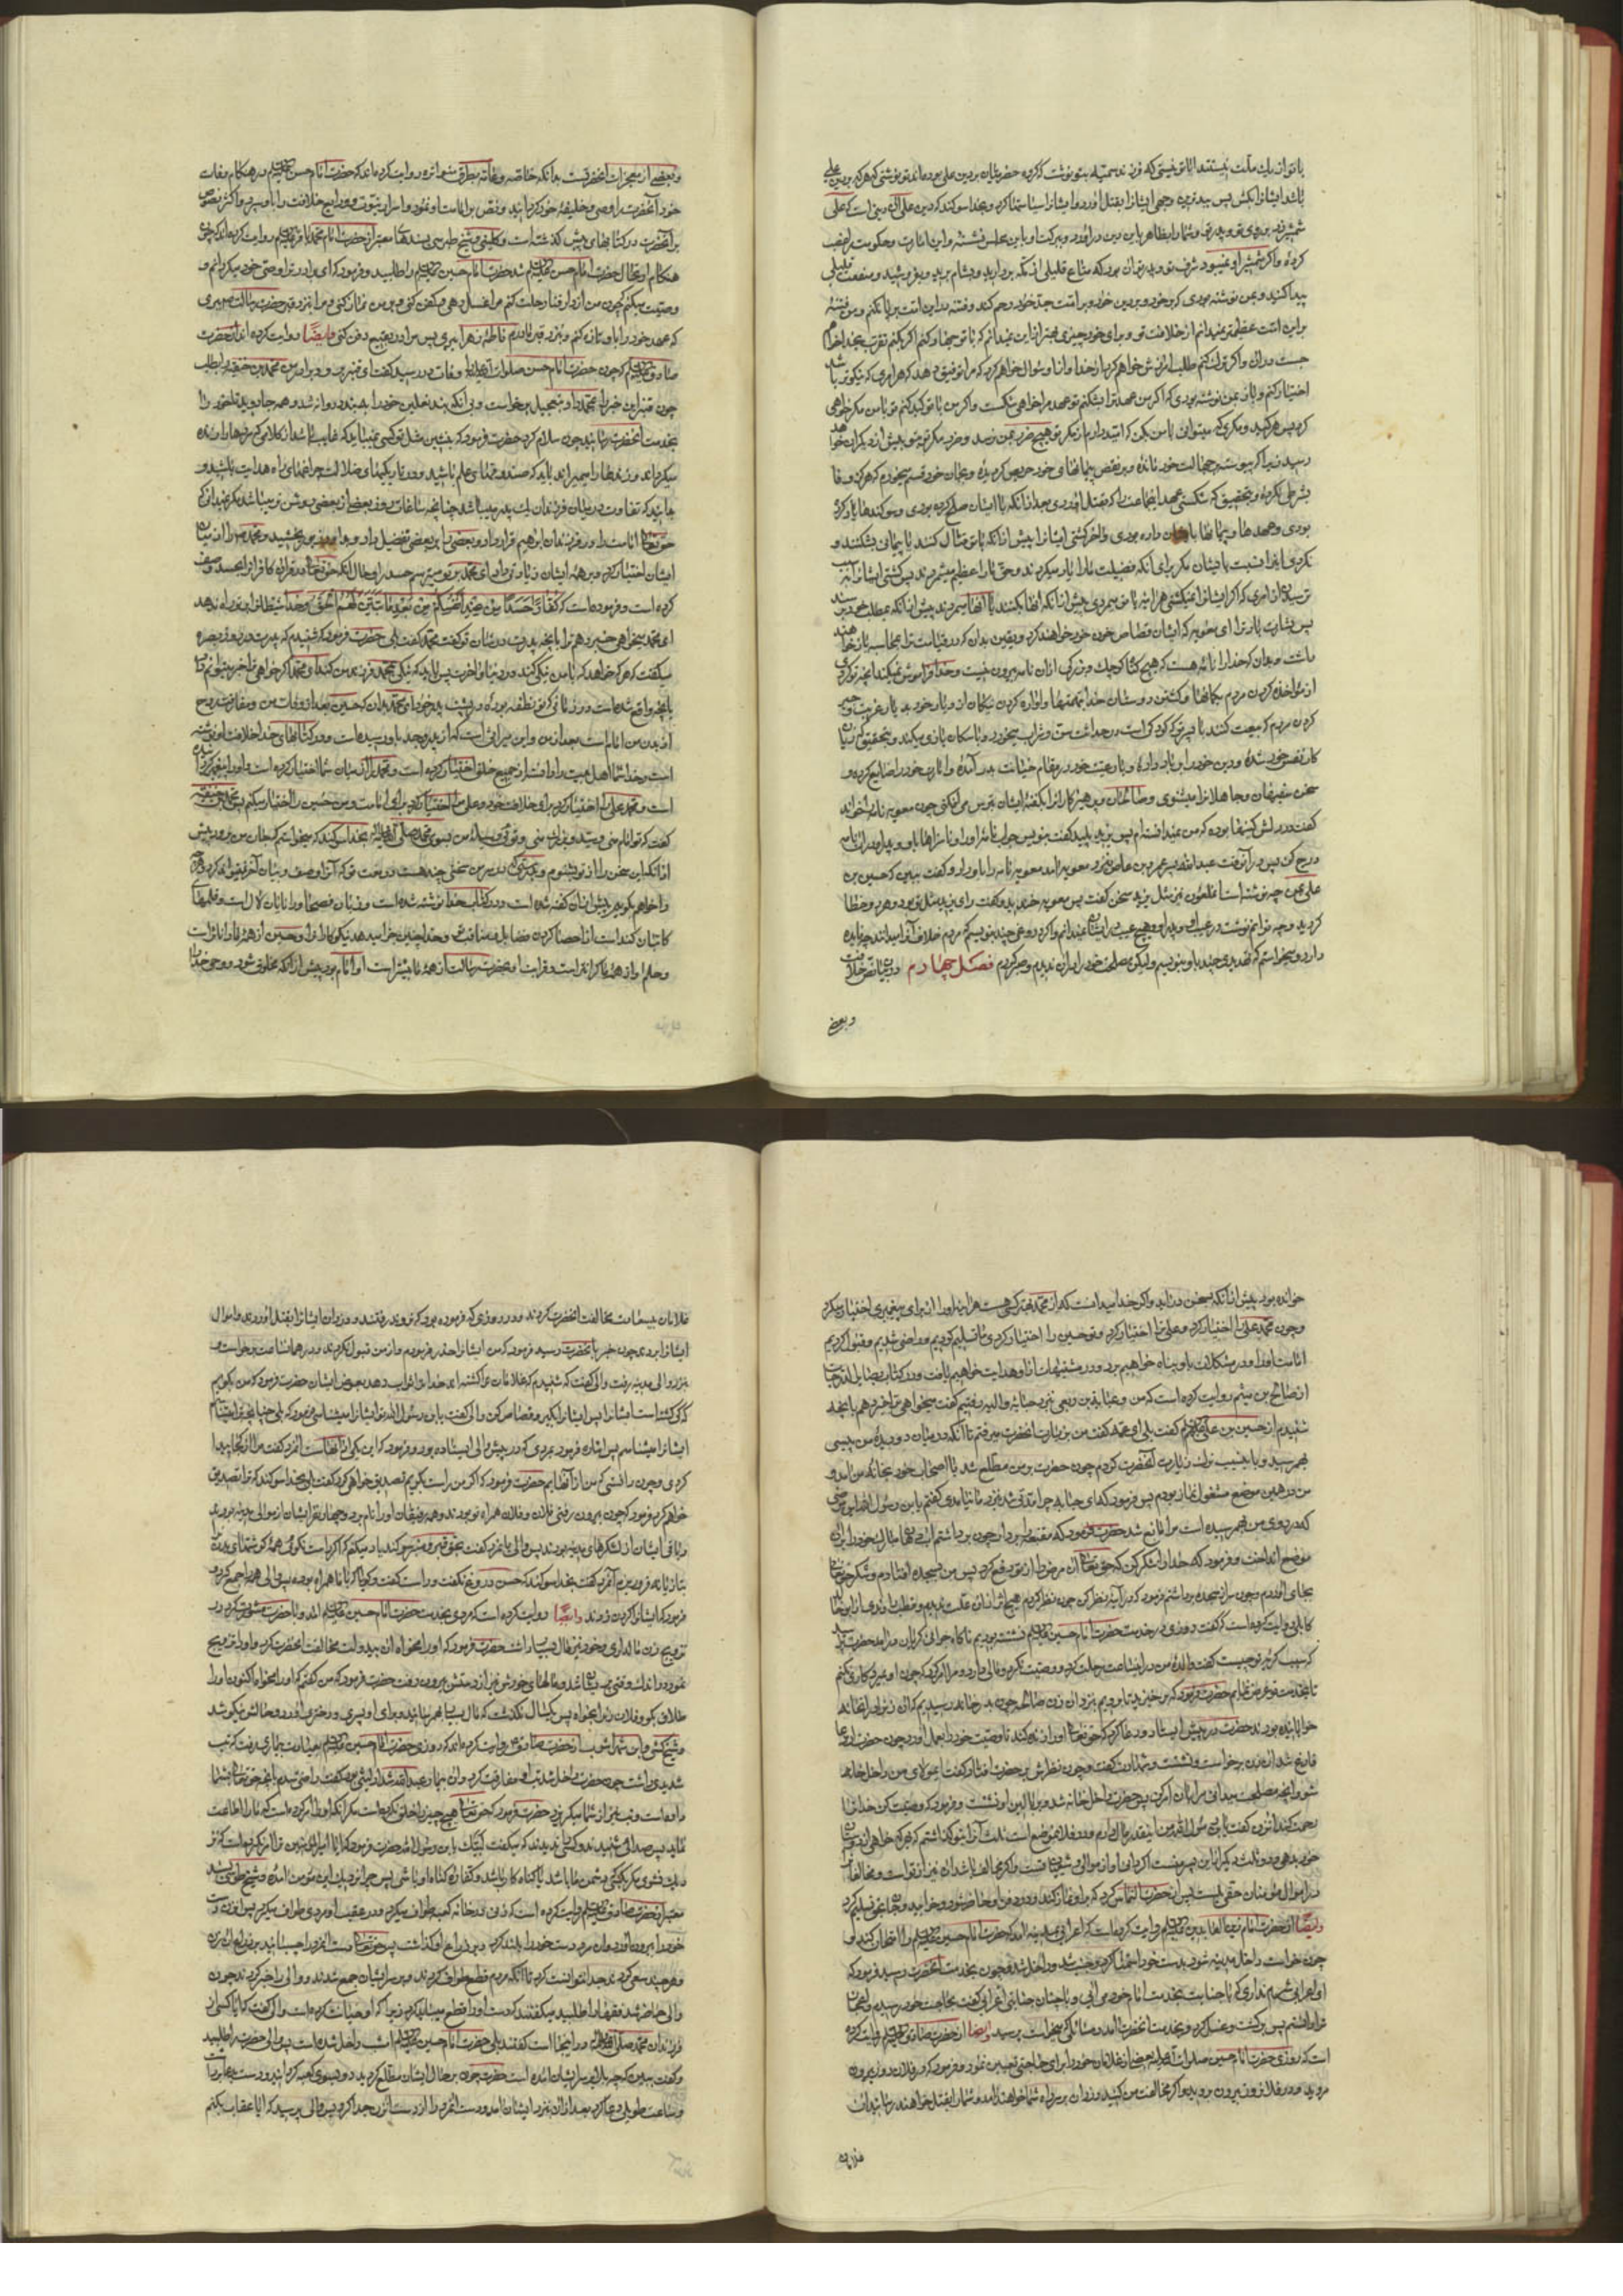 باتو از یک ملت نیستند ایا تو نیستی که فرزند سمیه بتو نوشت که گروه حضرمیان بر دین علی بوده‌اند تو نوشتی که هر که بر دین علی
باشد ایشانرا بکش پس پسر سمیه ایشانرا بقتل اورد و ایشانرا سیاست کرد و بخدا سوکند که دین علی آن دینی است که علی
شمشیر زد بر روی تو و پدر تو و شما را بظاهر باین دین در اورد و ببرکت او باین مجلس نشستهٔ و این امارت و حکومت را غصب
کردهٔ و اگر شمشیر او نمیبود شرف تو و پدر تو ان بود که متاع قلیلی از مکه بردارید و بشام برید و بفروشید و منفعت قلیلی
پیدا کنید و بمن نوشته بودی که بر خود و بر دین خود و بر امت جد خود رحم کن و فتنه در این امت بر پا مکن و من فتنهٔ
بر این امت عظیمتر نمیدانم از خلافت تو و برای خود چیزی بهتر از این نمیدانم که با تو جهاد کنم اگر بکنم تقرب بخدا خواهم
جست در ان و اگر ترک کنم طلب امرزش خواهم کرد از خدا و از او سؤال خواهم کرد که مرا توفیق دهد که هر امری که نیکوتر باشد
اختیار کنم و باز بمن نوشته بودی که اگر من عهد ترا بشکنم تو عهد مرا خواهی شکست و اگر من با تو کید کنم تو با من مکر خواهی
کرد پس هر کید و مکری که میتوانی با من بکن که امید دارم از مکر تو هیچ ضرر بمن نرسد و ضرر مکر تو بتو بیش از دیگران خواهد
رسید زیرا که پیوسته بجهالت خود مانده و بر نقض پیمانهای خود حریص گردیدهٔ و بجان خود قسم میخورم که هرگز وفا
بشرطی نکردهٔ و بتحقیق که شکستی عهد این جماعت را که بقتل اوردی بعد از انکه با ایشان صلح کرده بودی و سوکندها یاد کرده
بودی و عهدها و پیمانها با ایشان داده بودی و اخر کشتی ایشانرا پیش از انکه با تو قتال کنند یا پیمان بشکنند و
نکردی اینرا نسبت بایشان مگر برای انکه فضیلت ما را یاد میکردند و حق ما را عظیم میشمردند پس کشتی ایشانرا به سبب
ترسیدن از امری که اگر ایشانرا نمیکشتی هراینه یا تو میمردی پیش از انکه انها بکنند یا انها میمردند پیش از انکه بمطلب خود برسند
پس بشارت باد ترا ای معویه که ایشان قصاص خون خود خواهند کرد و یقین بدان که در قیامت ترا بمحاسبه باز خواهند
داشت و بدان که خدا را نامهٔ هست که هیچ گناه کوچک و بزرگ از ان نامه بیرون نیست و خدا فراموش نمیکند انچه تو کردی
از مؤاخذه کردن مردم بگمانها و کشتن دوستان خدا بتهمتها و اواره کردن نیکان از دیار خود بدیار غربت و جبر
کردن مردم که بیعت کنند با پسر تو که کودکی است در حداثت سن و شراب میخورد و با سگان بازی میکند و بتحقیق که زیان
کار نفس خود شدهٔ و دین خود را بر باد دادهٔ و با رعیت خود در مقام خیانت بر آمدهٔ و امارت خود را ضایع کرده و
سخن سفیهان و جاهلانرا میشنوی و صالحان و پرهیزکارانرا بگفتهٔ ایشان می‌ترسانی چون معویه نامه را خواند
گفت در دلش کینها بوده که من نمیدانستم پس یزید پلید گفت بنویس جواب نامهٔ او را و ناسزاها باو و پدر او در ان نامه
درج کن پس در آن وقت عبدالله پسر عمرو بن عاص بنزد معویه امد معویه نامه را باو داد و گفت ببین که حسین بن
علی بمن چه نوشته است ان ملعون نیز مثل یزید سخن گفت پس معویه خندید و گفت رای یزید مثل تو بود و هر دو خطا
کردید و چه توانم نوشت در عیب او و پدر او و هیچ عیب در ایشان نمیدانم و اگر دروغی چند بنویسم مردم خلاف آنرا میدانند چه فایده
دارد و میخواستم که تهدیدی چند باو بنویسم ولیکن مصلحت خود را در ان ندیدم و صبر کردم فصل چهارم در بیان نص خلافت
و بعضی
و بعضی از معجزات انحضرت است بدانکه خاصه و عامه بطرق متواتره روایت کرده‌اند که حضرت امام حسن علیه السلم در هنگام وفات
خود آنحضرت را وصی و خلیفهٔ خود گردانید و نص بر امامت او نمود و اسرار نبوت و ودایع خلافت را باو سپرد و اکثر نصوص
بر آنحضرت در کتابهای پیش گذشته است و کلینی و شیخ طبرسی بسندهای معتبر از حضرت امام محمد باقر علیه السلم روایت کرده‌اند که چون
هنگام ارتحال حضرت امام حسن علیه السلم شد حضرت امام حسین علیه السلم را طلبید و فرمود که ای برادر ترا وصی خود میگردانم و
وصیت میکنم که چون من از دار فنا رحلت کنم مرا غسل دهی و کفن کنی و بر من نماز کنی و مرا بنزد قبر حضرت رسالت صم بری
که عهد خود را باو تازه کنم و بنزد قبر مادرم فاطمه زهرا ببری پس مرا در بقیع دفن کنی و ایضًا روایت کرده‌اند از حضرت
صادق علیه السلم که چون حضرت امام حسن صلوات الله علیه را وفات در رسید گفت ای قنبر برو و برادر من محمد بن حنفیه را بطلب
چون قنبر این خبر را بمحمد داد بتعجیل برخاست و بی آنکه بند نعلین خود را ببندد روانه شد و همه جا دوید تا خود را
بخدمت آنحضرت رسانید چون سلام کرد حضرت فرمود که بنشین مثل تو کسی نمیباید که غایب باشد از کلامی که مردها را زنده
میگرداند و زنده‌ها را میمیراند باید که صندوقهای علم باشید و در تاریکیهای ضلالت چراغهای راه هدایت باشید و
بدانید که تفاوت در میان فرزندان یک پدر میباشد چنانچه ساعات روز بعضی از بعضی روشن تر میباشد مگر نمیدانی که
حق تعالی امامت را در فرزندان ابراهیم قرار داد و بعضی را بر بعضی تفضیل داد و بداود زبور بخشید و محمد صم را از میان
ایشان اختیار کرد و بر همه ایشان زیادتی داد ای محمد بر تو میترسم حسد را بجهت آنکه حق تعالی در قران کافران را بحسد وصف
کرده است و فرموده است که کُفَّارًا حَسَدًا مِنْ عِنْدِ اَنْفُسِهِمْ مِنْ بَعْدِ مَا تَبَيَّنَ لَهُمُ الْحَقُّ و خدا شیطانرا بر تو راه ندهد
ای محمد میخواهی خبر دهم ترا بانچه پدرت در شان تو گفت محمد گفت بلی حضرت فرمود که شنیدم که پدرت در روز بصره
میگفت که هر که خواهد که با من نیکی کند در دنیا و آخرت پس باید که نیکی بمحمد فرزند من کند ای محمد اگر خواهی ترا خبر میتوانم داد
بانچه واقع شده است در زمانی که تو نطفه بودی در پشت پدر خود ای محمد بدان که حسین بعد از وفات من و مفارقت روح
از بدن من امام است بعد از من و این میراثی است که از پدر و جد باو رسیده است و در کتابهای خدا خلافت او نوشته شده
است و خدا شما اهل بیت را از جمیع خلق اختیار کرده است و محمد را از میان شما اختیار کرده است
است و محمد علی را اختیار کرد برای خلافت خود و علی مرا اختیار کرد برای امامت و من حسین را اختیار میکنم پس محمد بن حنفیه
گفت که تو امام منی و وسیلهٔ من بسوی محمد صلی الله علیه و اله بخدا سوکند که میخواستم که جان من برود پیش
از انکه این سخن را از تو بشنوم و بدرستی که در سر من سخنی چند هست در مدح تو که
و اگر خواهم بگویم پیش از ان گفته شده است و در کتاب خدا نوشته شده است و زبان فصحا در ادای ان لال است و قلمهای
کاتبان کند است از احصا کردن فضایل و مناقب شما و خدا چنین جزا میدهد نیکوکاران را و حسین از همهٔ ما داناتر است
و حلم او از همه ما گرانتر است و قرابت او بحضرت رسالت از همهٔ ما بیشتر است او امام بود پیش از انکه مخلوق شود و وحی خدا را
خوانده بود پیش از انکه بسخن در اید و اگر خدا میدانست که از محمد بهتر کسی هست هراینه او را از برای پیغمبری اختیار میکرد
و چون محمد علی را اختیار کرد و علی ترا اختیار کرد و تو حسین را اختیار کردی ما تسلیم کردیم و راضی شدیم و قبول کردیم
امامت او را و در مشکلات باو پناه خواهیم برد و در مشتبهات از او هدایت خواهیم یافت و در کتاب بصایر الدرجات
از صالح بن میثم روایت کرده است که من و عبایه بن ربعی بنزد حبابه والبیه رفتیم گفت میخواهی ترا خبر دهم بانچه
شنیدم از حسین بن علی علیه السلم گفت بلی ای عمه گفت من بزیارت انحضرت میرفتم تا آنکه در میان دو دیدهٔ من پیسی
بهم رسید و باین سبب ترک زیارت آنحضرت کردم چون حضرت بر من مطلع شد با اصحاب خود بخانه من امد و
من در همین موضع مشغول نماز بودم پس فرمود که ای حبابه چرا مدتی شد بنزد ما نیامدی گفتم یابن رسول الله این مرض
که در روی من بهم رسیده است مرا مانع شد حضرت فرمود که مقنعه را بردار چون برداشتم آب دهان مبارک خود را بر ان
موضع انداخت و فرمود که خدا را شکر کن که حق تعالی ان مرض را از تو دفع کرد پس من بسجده افتادم و شکر حق تعالی
بجای اوردم و چون سر از سجده برداشتم فرمود که در آینه نظر کن چون نظر کردم هیچ اثر از ان علت ندیدم و قطب راوندی از ابو خالد
کابلی روایت کرده است که گفت روزی در خدمت حضرت امام حسین علیه السلم نشسته بودیم ناگاه جوانی گریان درامد حضرت پرسید
که سبب گریهٔ تو چیست گفت والدهٔ من در این ساعت رحلت کرد و وصیت نکرد و مالی دارد و مرا امر کرد که چون او بمیرد کاری نکنم
تا بخدمت تو عرض نمایم حضرت فرمود که برخیزید تا برویم بنزد ان زن صالحه چون بدر خانه رسیدیم که ان زن را در انجا
خوابانیده بودند حضرت در پیش ایستاد و دعا کرد که حق تعالی او را زنده کند تا وصیت خود را بعمل اورد چون حضرت از دعا
فارغ شد ان زن برخاست و نشست و شهادت گفت و چون نظرش بر حضرت افتاد گفت ای مولای من داخل خانه
شو و انچه مصلحت میدانی مرا بان امر کن پس حضرت داخل خانه شد و بر بالین او نشست و فرمود که وصیت کن خدا ترا
رحمت کند ان زن گفت یابن رسول الله من اینقدر مال دارم و در فلان موضع است ثلث آنرا بتو گذاشتم که بهر که خواهی از دوستان
خود بدهی و دو ثلث دیگر از این پسر منست اگر دانی او از موالی و شیعیان تست و اگر مخالف باشد ان نیز از تو است و مخالفان را
در اموال مؤمنان حقی نیست پس از حضرت التماس کرد که بر او نماز کند و در دفن او حاضر شود و خوابید و جان بحق تسلیم کرد
و ایضًا از حضرت امام زین العابدین علیه السلم روایت کرده است که اعرابی بمدینه امد که حضرت امام حسین علیه السلم را امتحان کند و
چون خواست داخل مدینه شود بدست خود استمنا کرد و جنب شد و داخل شد و چون بخدمت انحضرت رسید فرمود که
ای اعرابی شرم نداری که با جنابت بخدمت امام خود می آیی اعرابی گفت بحاجت خود رسیدم و
ترا دانستم پس برگشت و غسل کرد و بخدمت انحضرت امد و مسائلی که میخواست پرسید و ایضا از حضرت صادق علیه السلم روایت کرده
است که روزی حضرت امام حسین صلوات الله علیه بعضی از غلامان خود را برای حاجتی تعیین نمود و فرمود که در فلان روز بیرون
مروید و در فلان روز بیرون بروید و اگر مخالفت من کنید دزدان بر سر راه شما خواهند امد و شما را بقتل خواهند رسانید ان
غلامان
غلامان بیسعادت مخالفت انحضرت کردند و در روزی که فرموده بود که نروند رفتند و دزدان ایشانرا بقتل اوردند و اموال
ایشانرا بردند چون خبر بانحضرت رسید فرمود که من ایشانرا حذر فرمودم و از من قبول نکردند و در همان ساعت برخاست و
بنزد والی مدینه رفت والی گفت که شنیدم که غلامان ترا کشته اند خدا ترا ثواب دهد بعوض ایشان حضرت فرمود که من بگویم
که کی کشته است ایشانرا پس ایشانرا بگیر و قصاص کن والی گفت یابن رسول الله تو ایشانرا میشناسی فرمود که بلی چنانچه ترا میشناسم
ایشانرا میشناسم پس اشاره فرمود بمردی که در پیش والی ایستاده بود و فرمود که این یکی از انهاست انمرد گفت مرا از کجا پیدا
کردی و چون دانستی که من از آنهایم حضرت فرمود که اگر من راست بگویم تصدیق خواهی کرد گفت بلی بخدا سوکند که ترا تصدیق
خواهم کرد فرمود که چون بیرون رفتی فلان و فلان همراه تو بودند و همه رفیقان او را نام برد و چهار نفر ایشان از موالی مدینه بودند
و باقی ایشان از لشکرهای مدینه بودند پس والی بانمرد گفت بحق قبر و منبر سوکند یاد میکنم که اگر راست نگویی همهٔ گوشتهای بدنت
بتازیانه فرو ریزم آنمرد گفت بخدا سوکند که حسین دروغ نگفت و راست گفت و گویا که با ما همراه بوده پس والی همه را جمع کرد و
فرمود که ایشانرا گردن زدند و ایضًا روایت کرده است که مردی بخدمت حضرت امام حسین علیه السلم امد و با حضرت مشورت کرد در
تزویج زن مالداری و خود نیز مال بسیار داشت حضرت فرمود که او را مخواه ان بیدولت مخالفت انحضرت کرد و او را تزویج
نمود و در اندک وقتی پریشان شد و مالهای خودش نیز از دستش بیرون رفت حضرت فرمود که من گفتم که او را مخواه اکنون او را
طلاق بگو و فلان زن را بخواه پس یکسال نگذشت که مال بسیار بهم رسانید و برای او پسری و دختری اورد و حالش نیکو شد
و شیخ کشی و ابن شهر آشوب از حضرت صادق روایت کرده‌اند که روزی حضرت امام حسین علیه السلم بعیادت بیماری رفت که تب
شدیدی داشت چون حضرت داخل شد تب از او مفارقت کرد و ان بیمار عبدالله شداد لیثی بود گفت راضی شدم بانچه حق تعالی بشما
داده است و تب نیز از شما میگریزد حضرت فرمود که حق تعالی هیچ چیز را خلق نکرده است مگر انکه او را امر کرده است که ما را اطاعت
نماید پس صدایی شنیدند و کسی را ندیدند که میگفت لبیک یابن رسول الله حضرت فرمود که ایا امیرالمؤمنین ترا امر نکرده است که نز
دیک نشوی مگر بکسی که دشمن ما باشد یا گناه کار باشد و کفاره گناه او باشی پس چرا نزدیک این مؤمن امدهٔ و شیخ طوسی بسند
معتبر از حضرت صادق علیه السلم روایت کرده است که زنی در خانه کعبه طواف میکرد و در عقب او مردی طواف میکرد پس ان زن دست
خود را بیرون اورد و ان مرد دست خود را بلند کرد و بر ذراع او گذاشت پس حق تعالی دست انمرد را چسبانید بر ذراع ان زن
و هر چند سعی کردند جدا نتوانست کرد تا آنکه مردم قطع طواف کردند و بر سر ایشان جمع شدند و والی را خبر کردند چون
والی حاضر شد فقها را طلبید میگفتند که دست او را قطع میباید کرد زیرا که او خیانت کرده است والی گفت که ایا کسی از
فرزندان محمد صلی الله علیه و اله در اینجا است گفتند بلی حضرت امام حسین علیه السلم امشب داخل شده است پس والی حضرت را طلبید
و گفت ببین که چه بلا بر سر ایشان امده است حضرت چون بر حال ایشان مطلع گردید رو بسوی کعبه کرد و دست بدعا برداشت
و ساعت طویلی دعا کرد بعد از ان بنزد ایشان امد و دست انمرد را از دست ان زن جدا کرد پس والی پرسید که ایا عقاب بکنم